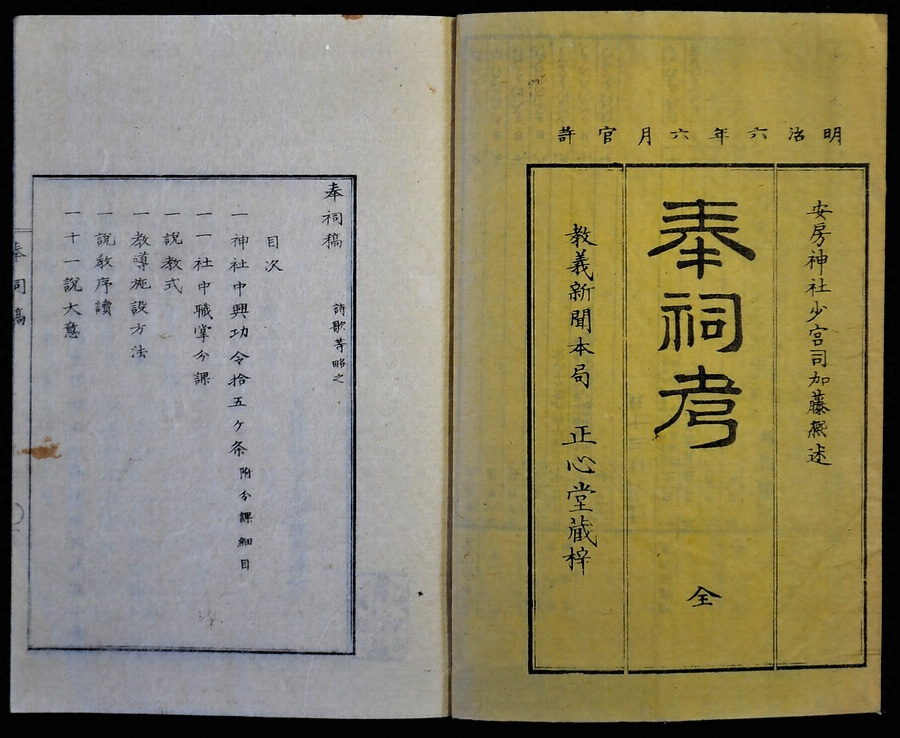 明治六年六月官許
安房神社少宮司加藤熈述
奉祠考
全
教義新聞本局 正心堂蔵梓
奉祠稿 詩歌等略之
目次
一神社中興功令拾五ヶ条附分課細目
一一社中職掌分課
一説教式
一教導施設方法
一説教序讀
一十一説大意
奉祠稿